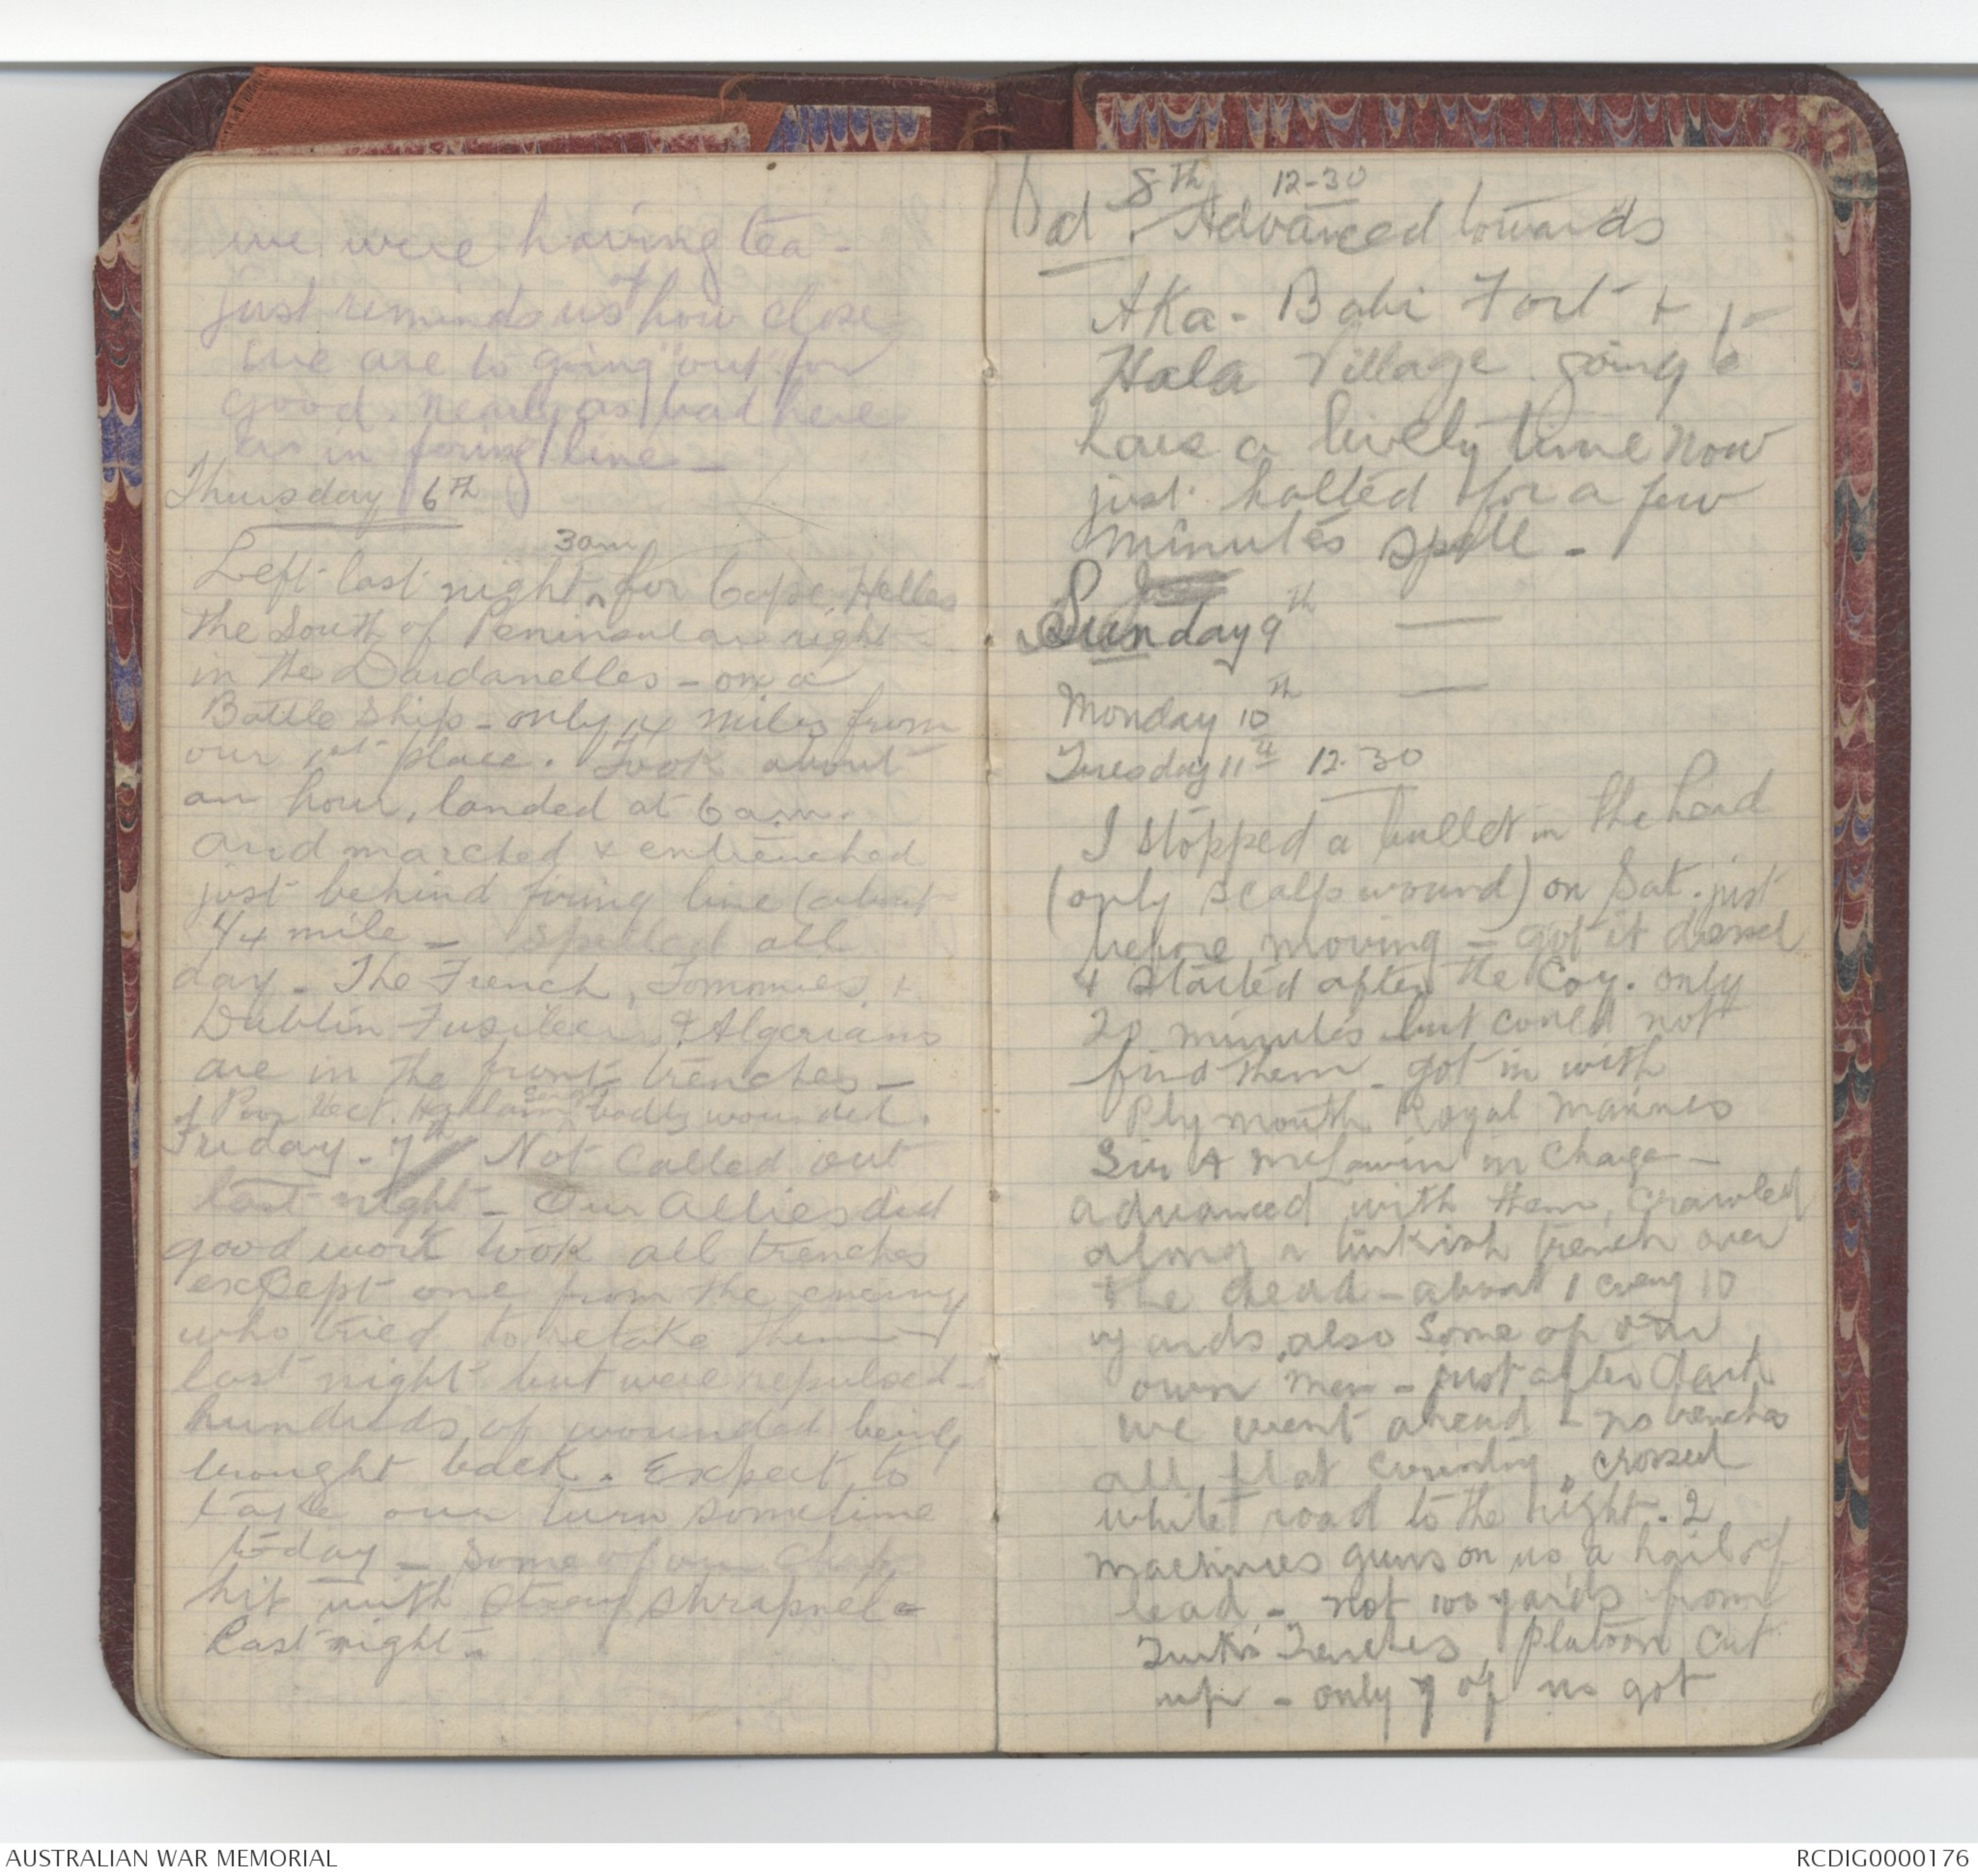 we were having tea -
just reminds us of how close
we are to going "out" for
good. nearly as bad here
as in firing line -
Thursday 6th
3am
Left last night ^ for Cape Helles
the South of Peninsular right
in the Dardanelles - on a
Battle Ship - only 14 miles from
our 1st place. Took about
an hour, landed at 6 am.
and marched & entrenched
just behind firing line (about
1/4 mile - Spelled all
day - The French, Tommies, +
Dublin Fusileers & Algerians
are in the front trenches -
Poor Vect. badly wounded.
Friday - 7th Not called out
last night - Our Allies did
good work took all trenches
except one from the enemy
who tried to retake them
last night but were repulsed -
hundreds of wounded being
brought back. Expect to
take our turn sometime
today - some of our chaps
hit with stray shrapnel -
Last night -
Sat 8th 12-30
Advanced towards
Aka-Babi Fort +
Hala Village going to
have a lively time now
just halted for a few
minutes spell -
Sunday 9th —
Monday 10th —
Tuesday 11th 12.30
I stopped a bullet in the head
(only scalp wound) on Sat. just
before moving - got it dressed
+ Started after the Coy. only
20 minutes but could not
find them - got in with
Plymouth Royal Marines
in charge -
advanced with them, crawled
along a turkish trench over
the dead - about 1 every 10
yards, also some of our
own men - just after dark
we went ahead - no trenches
all flat country, crossed
white road to the right. 2
machines guns on us a hail of
lead - not 100 yards from
Turks Trenches, Platoon cut
up - only 7 of us got
AUSTRALIAN WAR MEMORIAL
RCDIG0000176